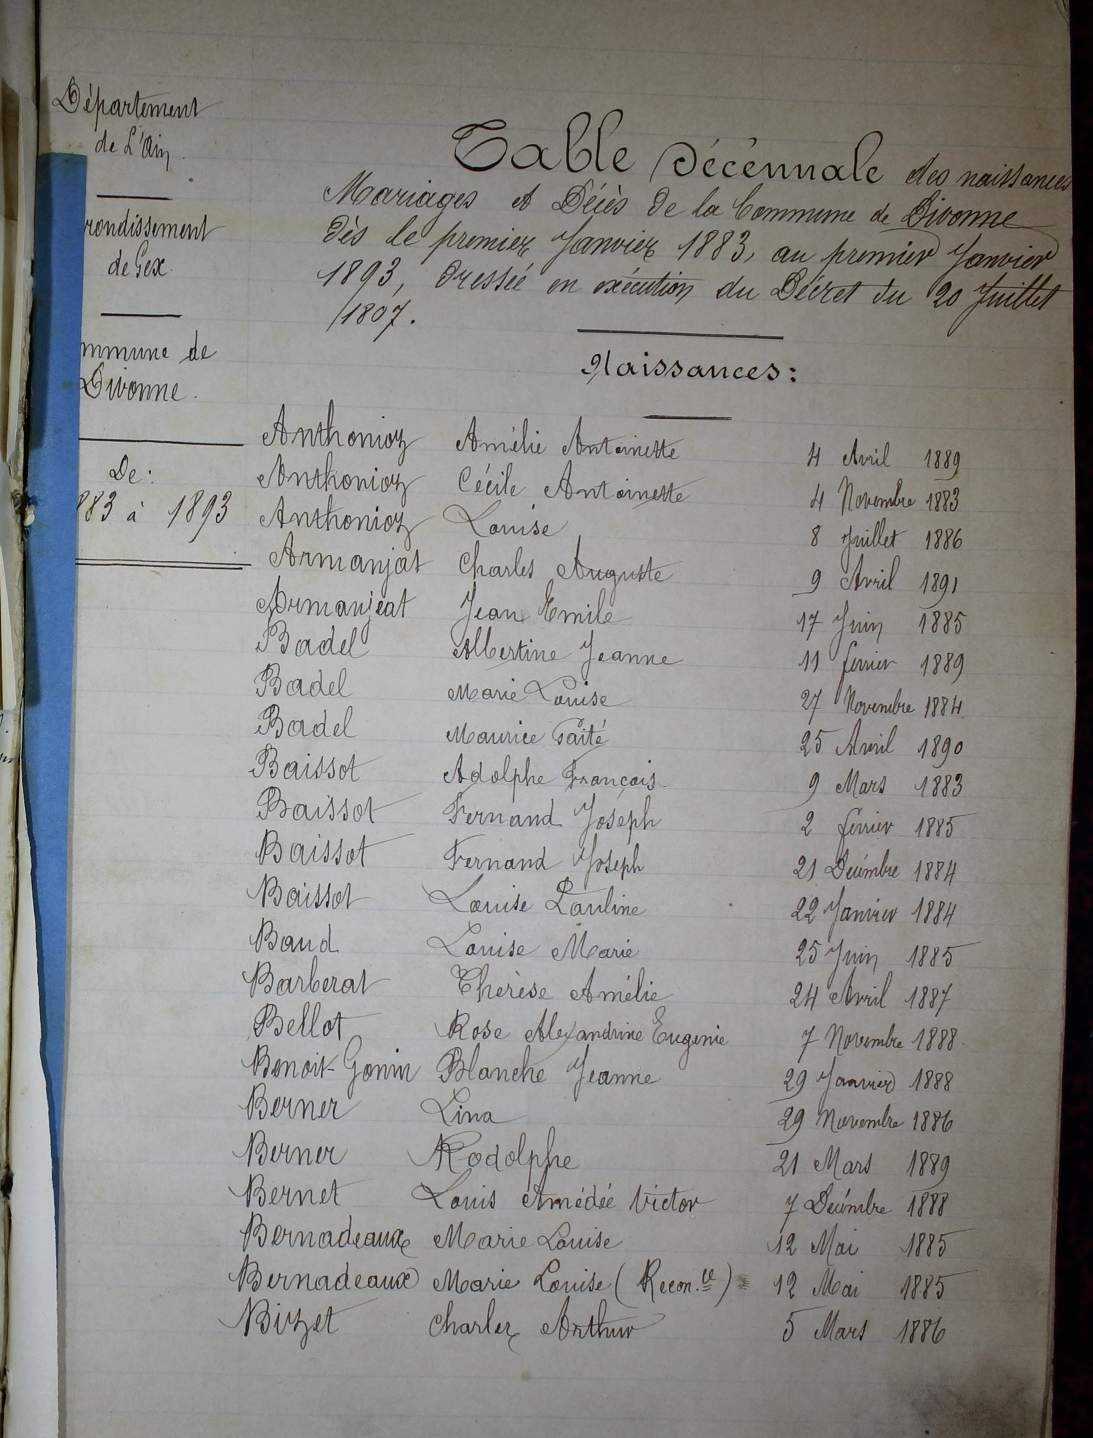 Département
de L'Ain
rondissement
de Gex
mmune de
Divonne.
De:
883 à 1893
Table Décennale des naissances
Mariages et Décès de la Commune de Divonne
dès le premier Janvier 1883, au premier Janvier
1893, dressée en exécution du Décret du 20 Juillet
1807.
Naissances:
Anthonioz Amélie Antoinette 4 Avril 1889
Anthonioz Cécile Antoinette 4 Novembre 1883
Anthonioz Louise 8 Juillet 1886
Armanjat Charles Auguste 9 Avril 1891
Armanjeat Jean Emile 17 Juin 1885
Badel Albertine Jeanne 11 février 1889
Badel Marie Louise 27 Novembre 1884
Badel Maurice 25 Avril 1890
Baissot Adolphe François 9 Mars 1883
Baissot Fernand Joseph 2 février 1885
Baissot Fernand Joseph 21 Décembre 1884
Baissot Louise Pauline 22 Janvier 1884
Baud Louise Marie 25 Juin 1885
Barberat Thérèse Amélie 24 Avril 1887
Bellot Rose Alexandrine Eugenie 7 Novembre 1888
Benoit-Gonin Blanche Jeanne 29 Janvier 1888
Berner Lina 29 Novembre 1886
Berner Rodolphe 21 Mars 1889
Bernet Louis Amédée Victor 7 Décembre 1888
Bernadeaux Marie Louise 12 Mai 1885
Bernadeaux Marie Louise (Recon.ce) 12 Mai 1885
Bizet Charles Arthur 5 Mars 1886